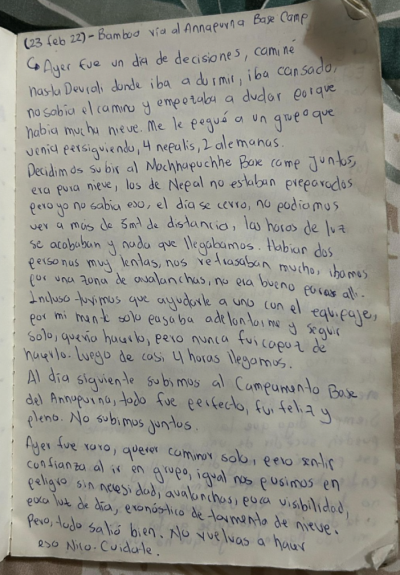 (23 feb 22) - Bamboo via al Annapurna Base Camp
Ayer fue un dia de decisiones, caminé
hasta Deurali donde iba a dormir, iba cansado,
no sabia el camino y empezaba a dudar porque
habia mucha nieve. Me le pegué a un grupo que
venia persiguiendo, 4 nepalis, 2 alemanas.
Decidimos subir al Machhapuchhe Base camp juntos,
era pura nieve, los de Nepal no estaban preparados
pero yo no sabia eso, el dia se cerro, no podiamos
ver a mas de 5mt de distancia, las horas de luz
se acababan y nada que llegabamos. Habian dos
personas muy lentas, nos retrasaban mucho, ibamos
por una zona de avalanchas, no era bueno parar allí.
Incluso tuvimos que ayudarle a uno con el equipaje,
por mi mente solo pasaba adelantarme y seguir
solo, queria hacerlo, pero nunca fui capaz de
hacerlo. Luego de casi 4 horas llegamos.
Al dia siguiente subimos al Campamento Base
del Annapurna, todo fue perfecto, fui feliz y
pleno. No subimos juntos.
Ayer fue raro, querer caminar solo, pero sentir
confianza al ir en grupo, igual nos pusimos en
peligro sin necesidad, avalanchas, poca visibilidad,
poca luz de dia, pronóstico de tormenta de nieve.
Pero, todo salió bien. No vuelvas a hacer
eso Nico. Cuidate.